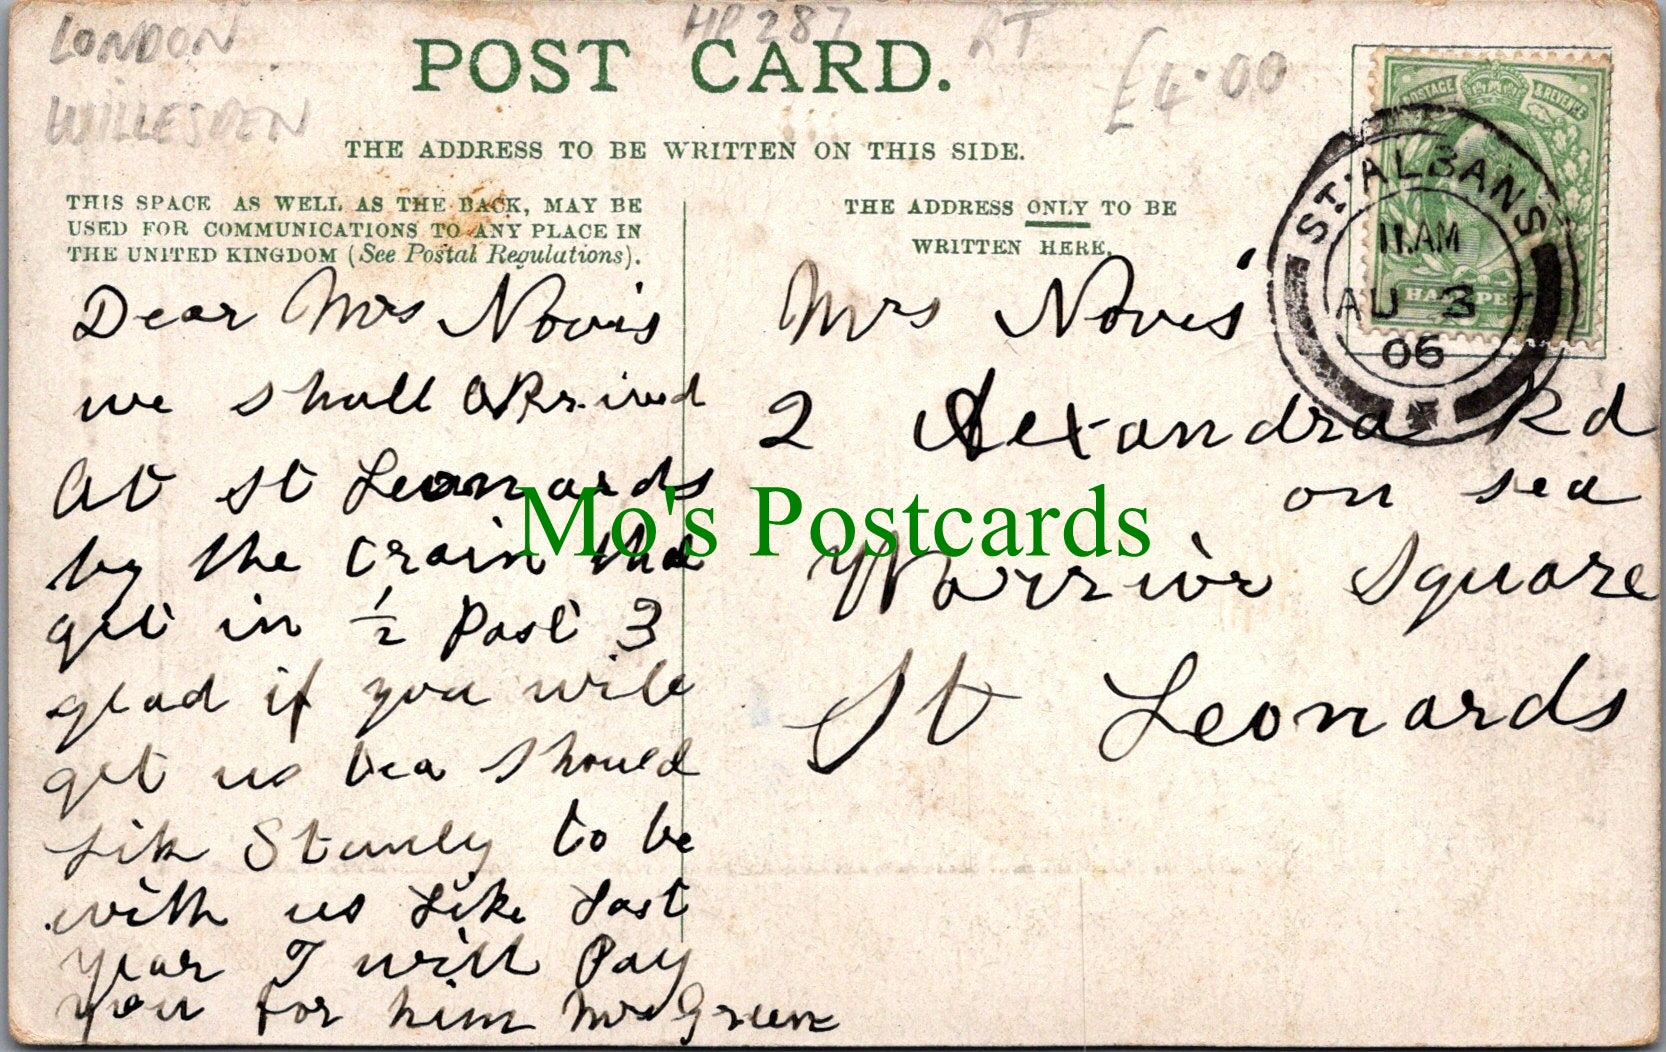 LONDON
WILLESDEN
HP287
RT
£4.00
POST CARD.
THE ADDRESS TO BE WRITTEN ON THIS SIDE.
THIS SPACE AS WELL AS THE BACK, MAY BE
USED FOR COMMUNICATIONS TO ANY PLACE IN
THE UNITED KINGDOM (See Postal Regulations).
THE ADDRESS ONLY TO BE
WRITTEN HERE.
POSTAGE & REVENUE
ST. ALBANS
11. AM
AU 3
06
Dear Mrs Novis
we shall arrived
At St Leonards
by the train tha
get in ½ Past 3
glad if you will
get us tea should
Lik Stanly to be
with us Like Last
year I will Pay
you for him Mrs Green
Mrs Novis
2 Alexandra Rd
on sea
Warrior Square
St Leonards
Mo's Postcards